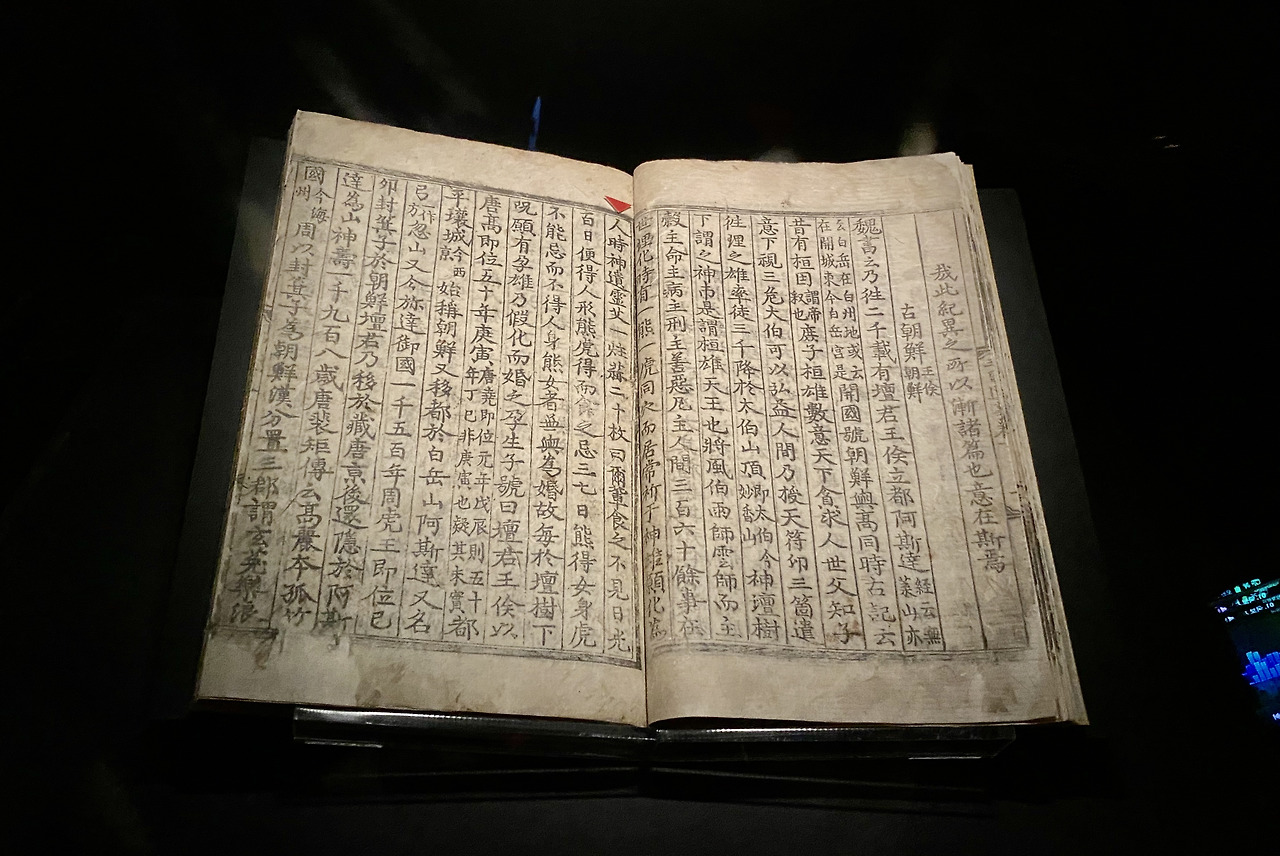 哉此紀異之所以漸諸篇也意在斯焉
古朝鮮王儉朝鮮
魏書云乃徃二千載有壇君王儉立都阿斯達經云無葉山亦
云白岳在白州地或云在開城東今白岳宮是開國號朝鮮與高同時古記云
昔有桓囯謂帝釋也庶子桓雄數意天下貪求人世父知子
意下視三危大伯可以弘益人間乃授天符印三箇遣
徃理之雄率徒三千降於太伯山頂即太伯今妙香山神壇樹
下謂之神市是謂桓雄天王也將風伯雨師雲師而主
糓主命主病主刑主善惡凡主人間三百六十餘事在
世理化時有一熊一虎同穴而居常祈于神雄願化爲
人時神遺靈艾一炷蒜二十枚曰爾軰食之不見日光
百日便得人形熊虎得而食之忌三七日熊得女身虎
不能忌而不得人身熊女者無與爲婚故每於壇樹下
呪願有孕雄乃假化而婚之孕生子號曰壇君王儉以
唐高即位五十年庚寅唐堯即位元年戊辰則五十年丁巳非庚寅也疑其未實都
平壤城今西京始稱朝鮮又移都於白岳山阿斯達又名
弓一作方忽山又今旀達御國一千五百年周虎王即位己
卯封箕子於朝鮮壇君乃移於藏唐京後還隱於阿斯
達爲山神壽一千九百八歲唐裴矩傳云高麗本孤竹
國今海州周以封箕子爲朝鮮漢分置三郡謂玄菟樂浪